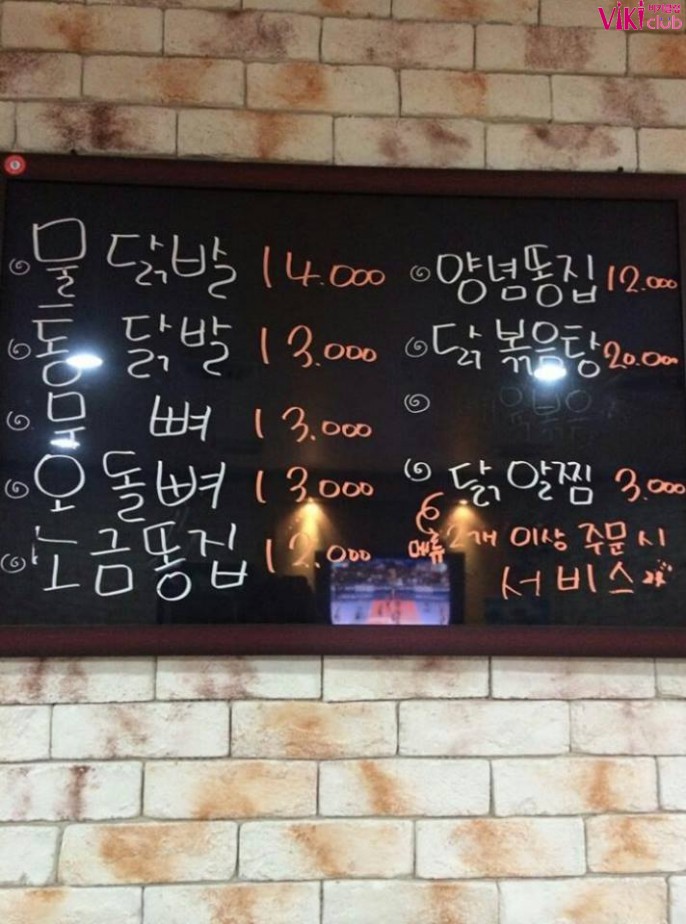 ViKi 비키클럽
club
물 닭발 14.000
통 닭발 13.000
무 뼈 13.000
오돌뼈 13.000
소금똥집 12.000
양념똥집 12.000
닭볶음탕 20.000
닭알찜 3.000
메뉴 2개 이상 주문시
서비스